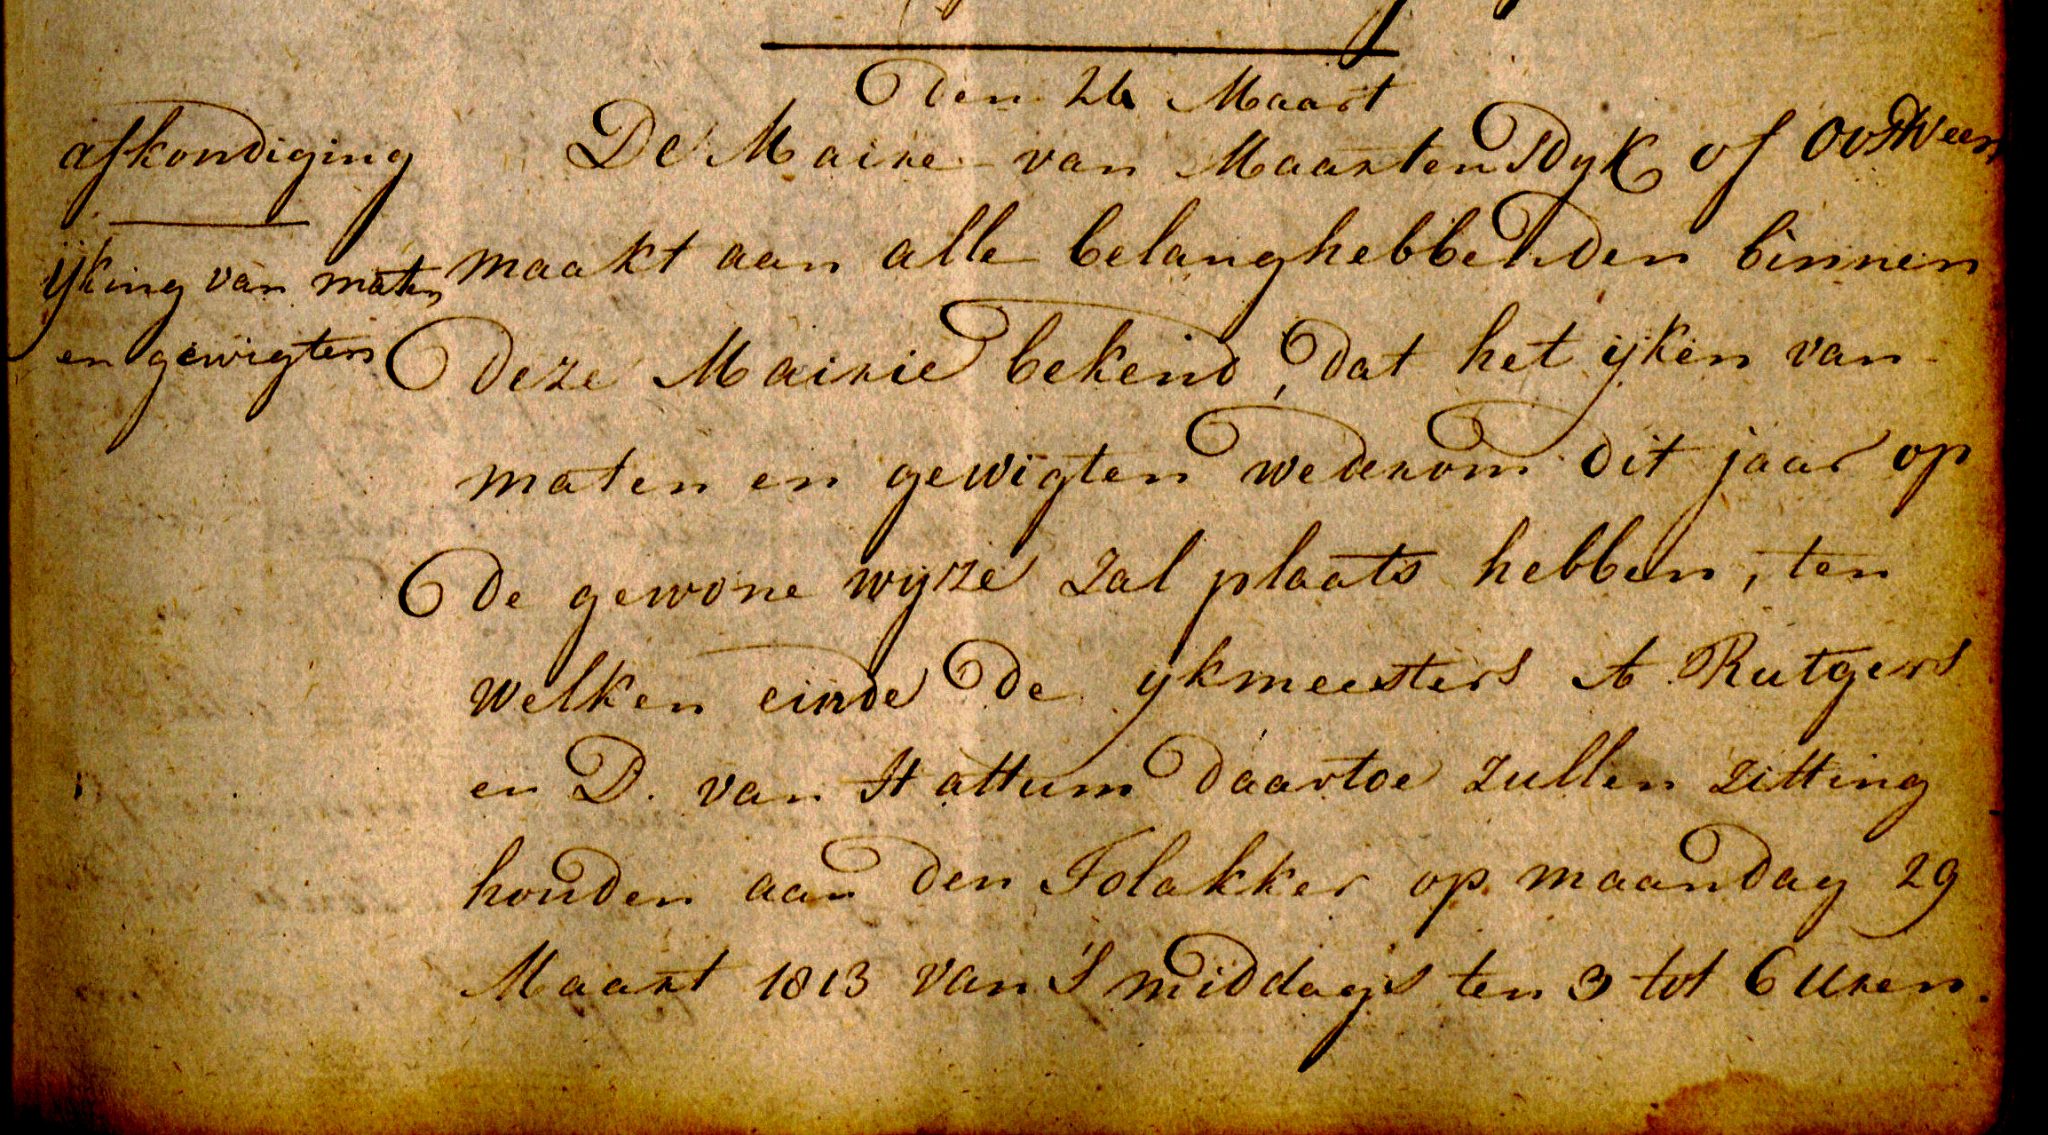 den 26 Maart
afkondiging
ijking van maten
en gewigten
De Maire van Maartensdyk of Oostveen
maakt aan alle belanghebbenden binnen
deze Mairie bekend, dat het ijken van
maten en gewigten wederom dit jaar op
de gewone wyze zal plaats hebben, ten
welken einde de ykmeesters A Rutgers
en D. van Hattum daartoe zullen zitting
houden aan den Tolakker op maandag 29
Maart 1813 van s middags ten 3 tot 6 uren.